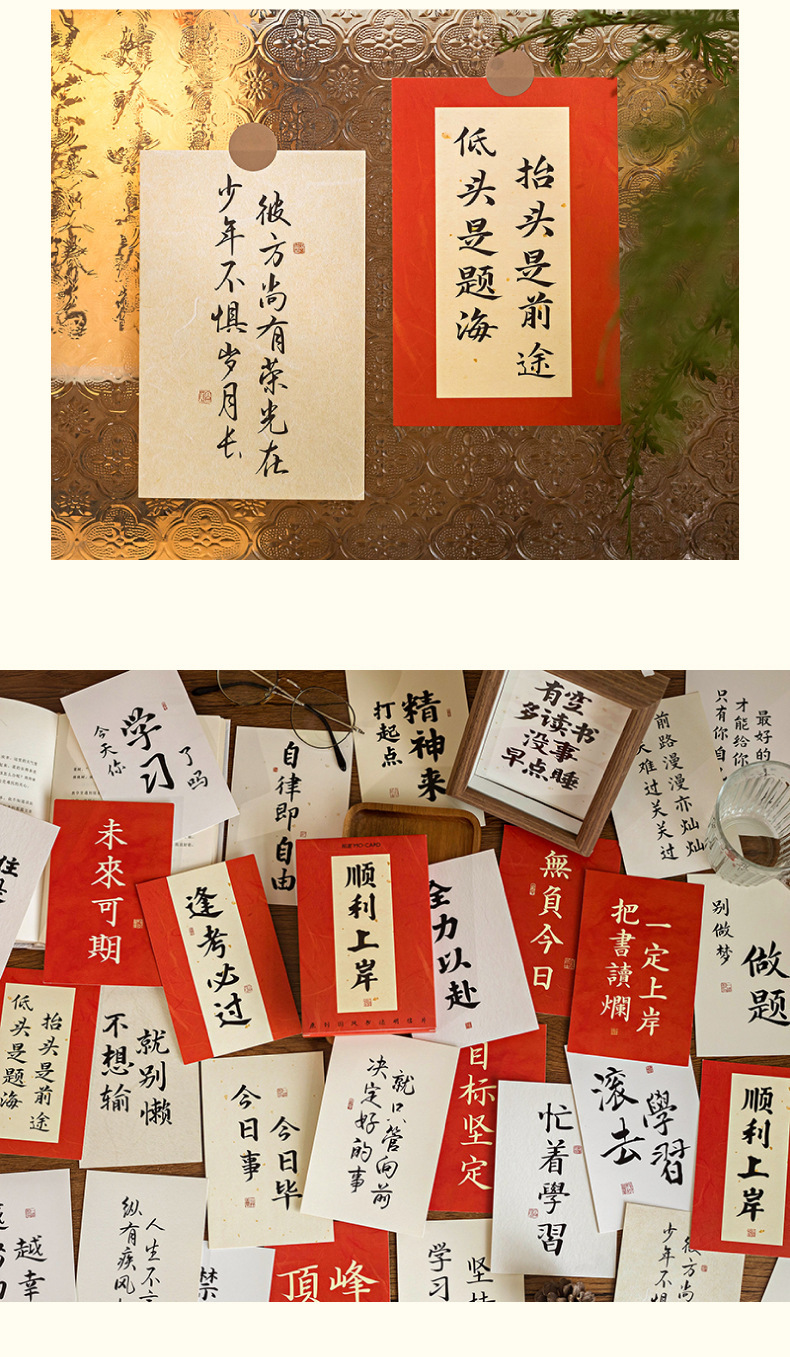 彼方尚有荣光在
少年不惧岁月长
抬头是前途
低头是题海
今天你
学习
了吗
自律即自由
打起点
精神来
有空
多读书
没事
早点睡
前路漫漫亦灿灿
难过关关过
最好的
才能给你
只有你自
未來可期
逢考必过
顺利上岸
全力以赴
無負今日
一定上岸
把書讀爛
别做梦
做题
抬头是前途
低头是题海
就别懒
不想输
今日毕
今日事
就只管向前
决定好的事
目标坚定
忙着學習
學習
滚去
顺利上岸
越幸
人生不言
纵有疾风
禁
頂峰
学习
坚持
彼方尚
少年不惧